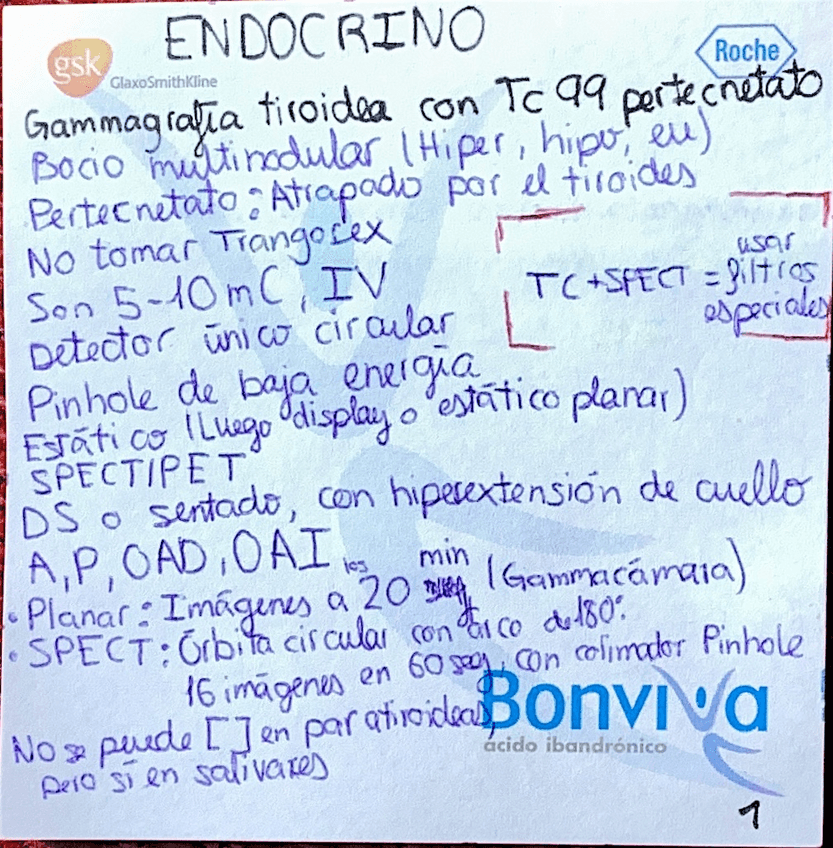 ENDOCRINO
gsk
GlaxoSmithKline
Roche
Gammagrafía tiroidea con Tc 99 pertecnetato
Bocio multinodular (Hiper, hipo, eu)
Pertecnetato: Atrapado por el tiroides
No tomar Trangorex
Son 5-10 mC, IV
TC + SPECT = usar
filtros
especiales
Detector único circular
Pinhole de baja energía
Estático (Luego display o estático planar)
SPECT/PET
DS o sentado, con hiperextensión de cuello
A, P, OAD, OAI
• Planar: Imágenes a los 20 min (Gammacámara)
• SPECT: Órbita circular con arco de 180º
16 imágenes en 60 seg, con colimador Pinhole
No se puede [ ] en paratiroideas,
pero sí en salivares
Bonviva
ácido ibandrónico
1